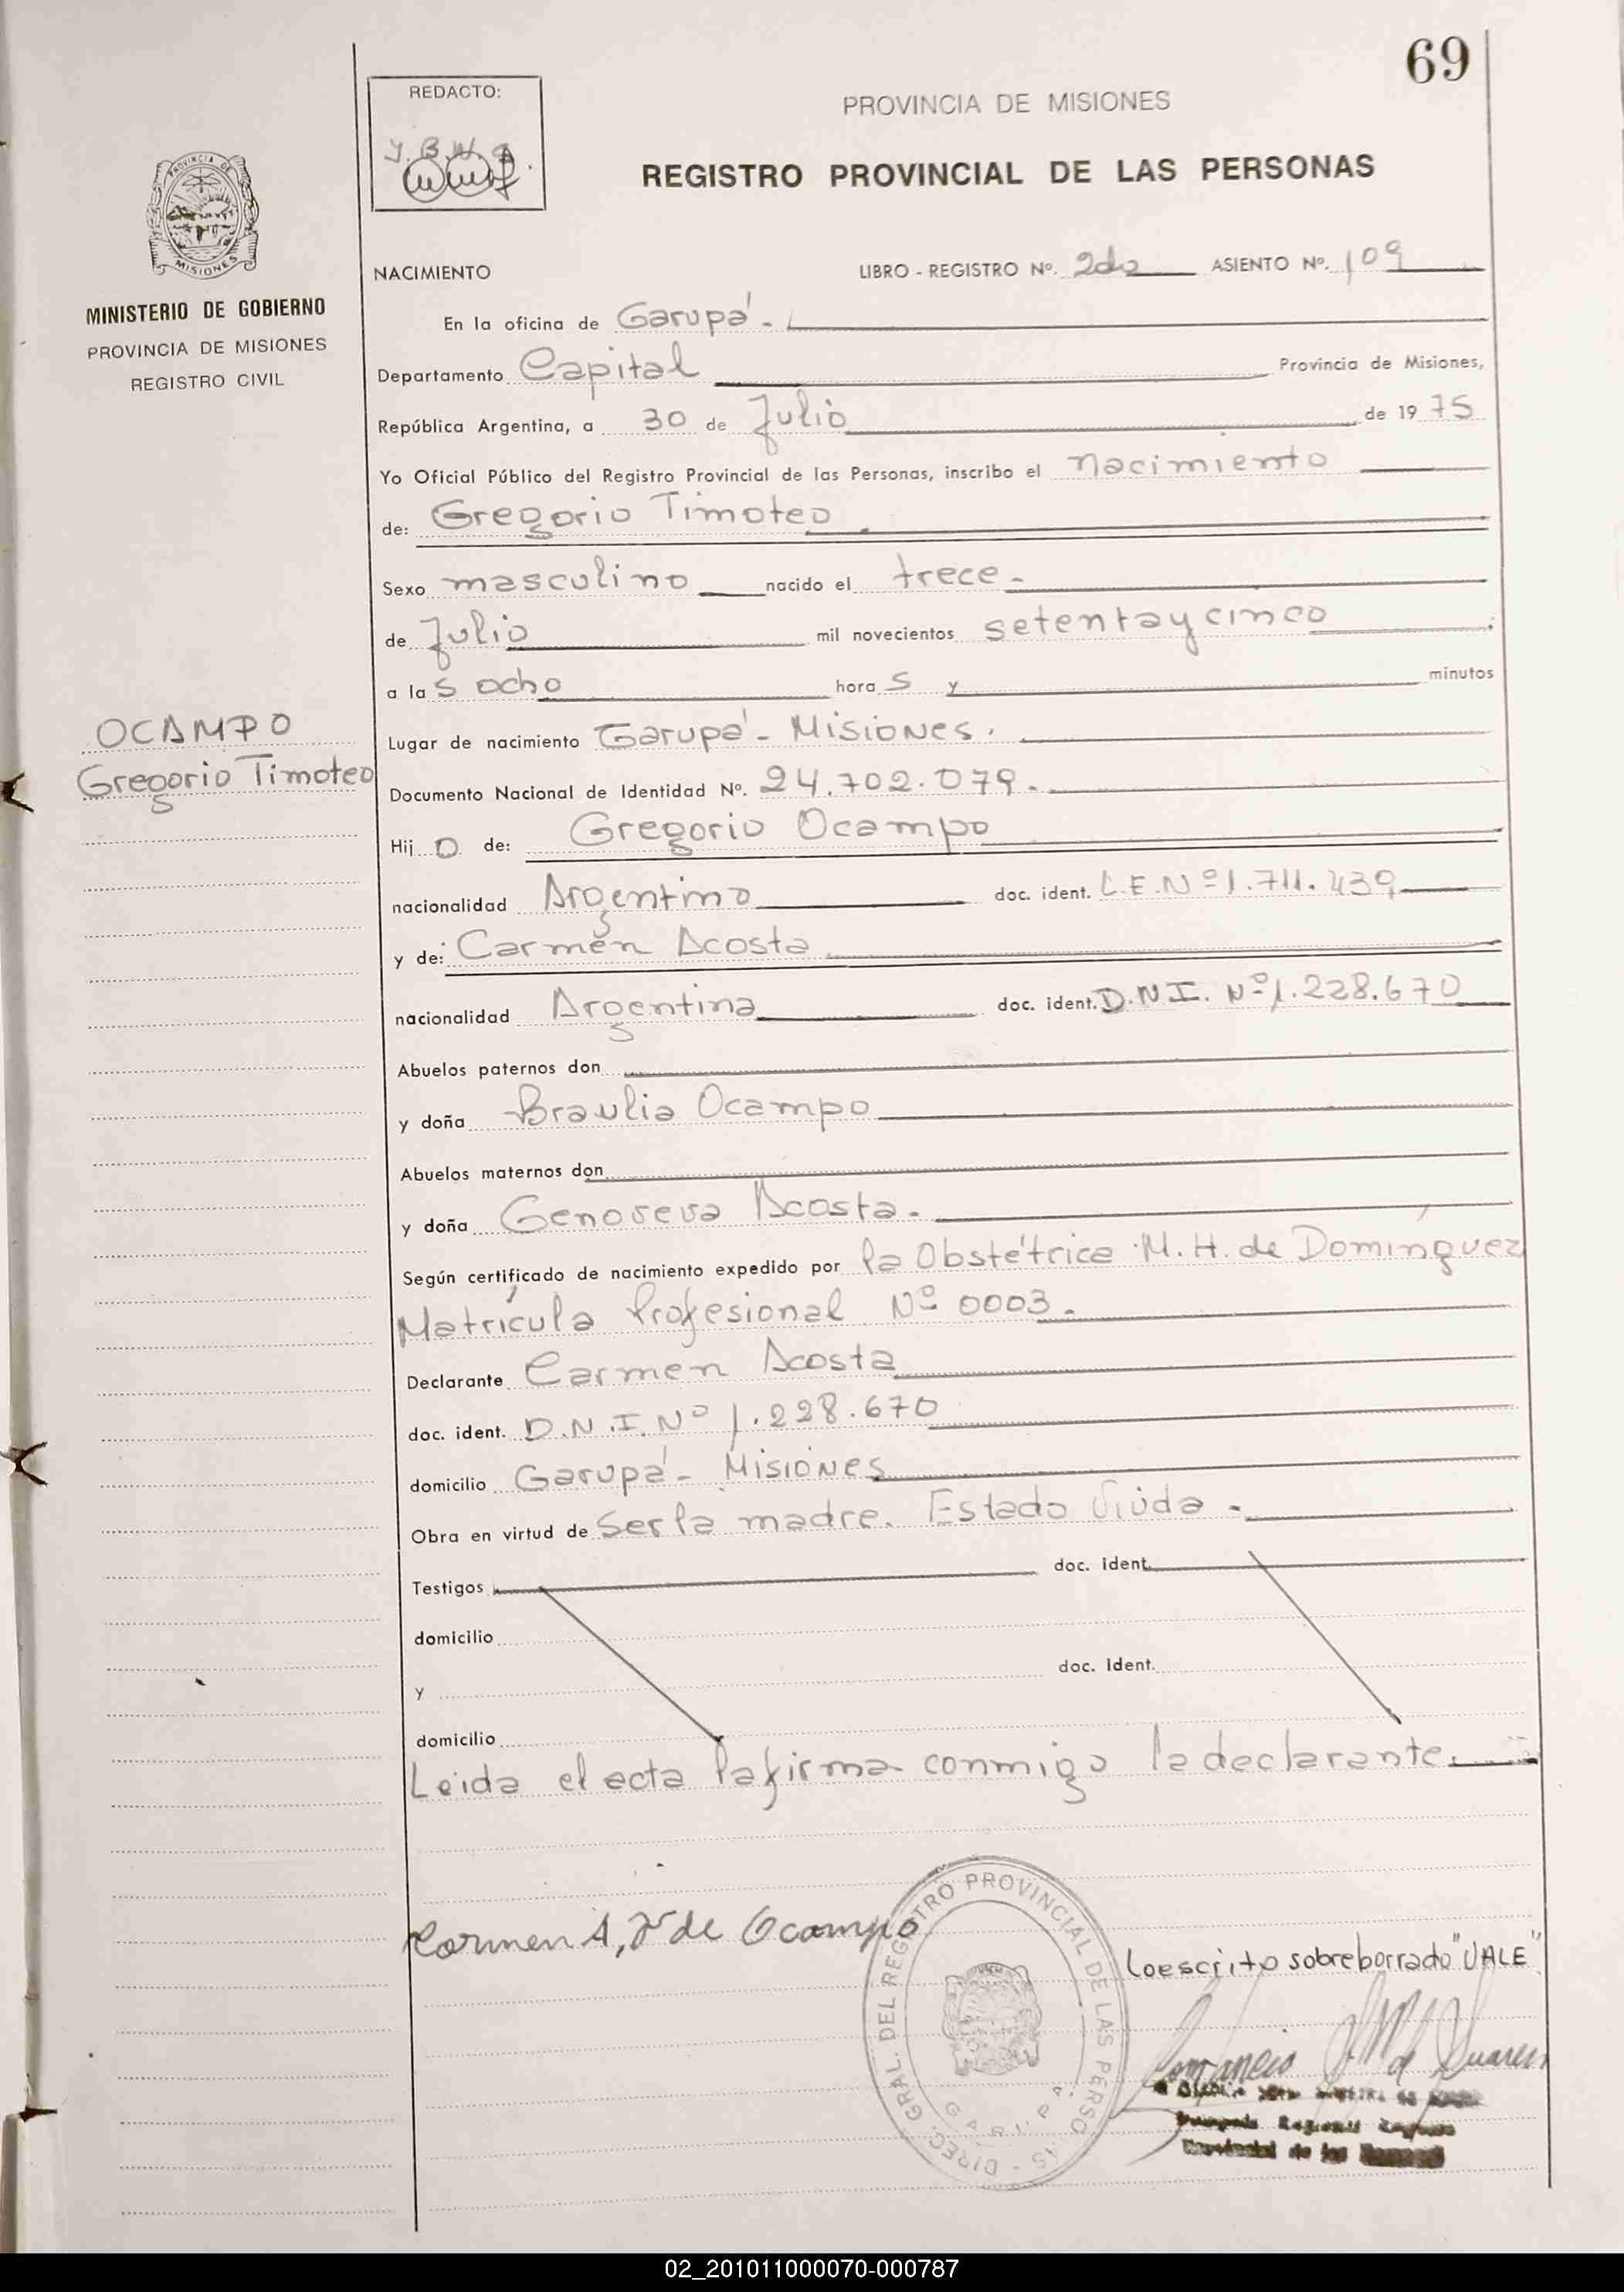 69
REDACTO:
PROVINCIA DE MISIONES
REGISTRO PROVINCIAL DE LAS PERSONAS
PROVINCIA DE
MISIONES
MINISTERIO DE GOBIERNO
PROVINCIA DE MISIONES
REGISTRO CIVIL
NACIMIENTO LIBRO - REGISTRO Nº. 2do ASIENTO Nº. 109
En la oficina de Garupá -
Departamento Capital Provincia de Misiones,
República Argentina, a 30 de Julio de 1975
Yo Oficial Público del Registro Provincial de las Personas, inscribo el nacimiento
de: Gregorio Timoteo
Sexo masculino nacido el trece -
de Julio mil novecientos setentaycinco
a las ocho horas y minutos
OCAMPO
Gregorio Timoteo
Lugar de nacimiento Garupá - Misiones.
Documento Nacional de Identidad Nº. 24.702.079.
Hijo de: Gregorio Ocampo
nacionalidad Argentino doc. ident. L.E.Nº1.711.439
y de: Carmen Acosta
nacionalidad Argentina doc. ident. D.N.I. Nº1.228.670
Abuelos paternos don
y doña Braulia Ocampo
Abuelos maternos don
y doña Genoveva Acosta.
Según certificado de nacimiento expedido por la Obstétrica M.H. de Domínguez
Matrícula Profesional Nº 0003.
Declarante Carmen Acosta
doc. ident. D.N.I.Nº 1.228.670
domicilio Garupá - Misiones
Obra en virtud de Ser la madre. Estado Viuda -
Testigos doc. ident.
domicilio
y doc. ident.
domicilio
Leida el acta la firma conmigo la declarante.
Carmen A, Vª de Ocampo
Lo escrito sobreborrado "VALE"
DIREC. GRAL. DEL REGISTRO PROVINCIAL DE LAS PERSONAS
GARUPA
02_201011000070-000787